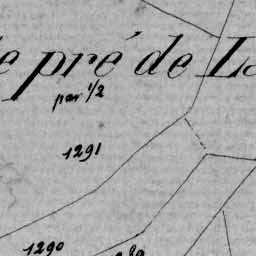 pré de
par 1/2
1291
1290